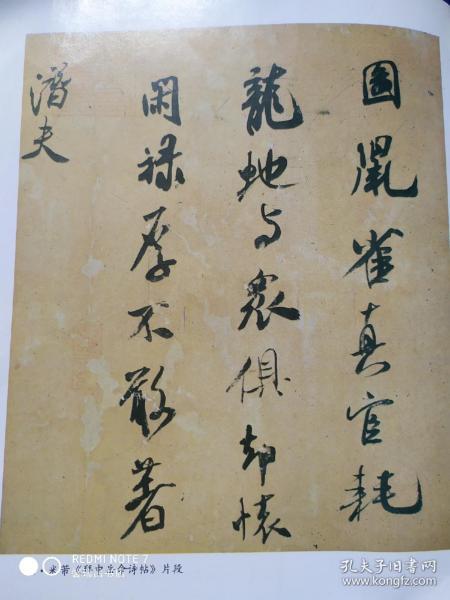 圖鼠雀真官耗
龍虵与衆俱却懷
閑禄厚不敢著
潛夫
·米芾《拜中岳命诗帖》片段
REDMI NOTE 7
孔夫子旧书网